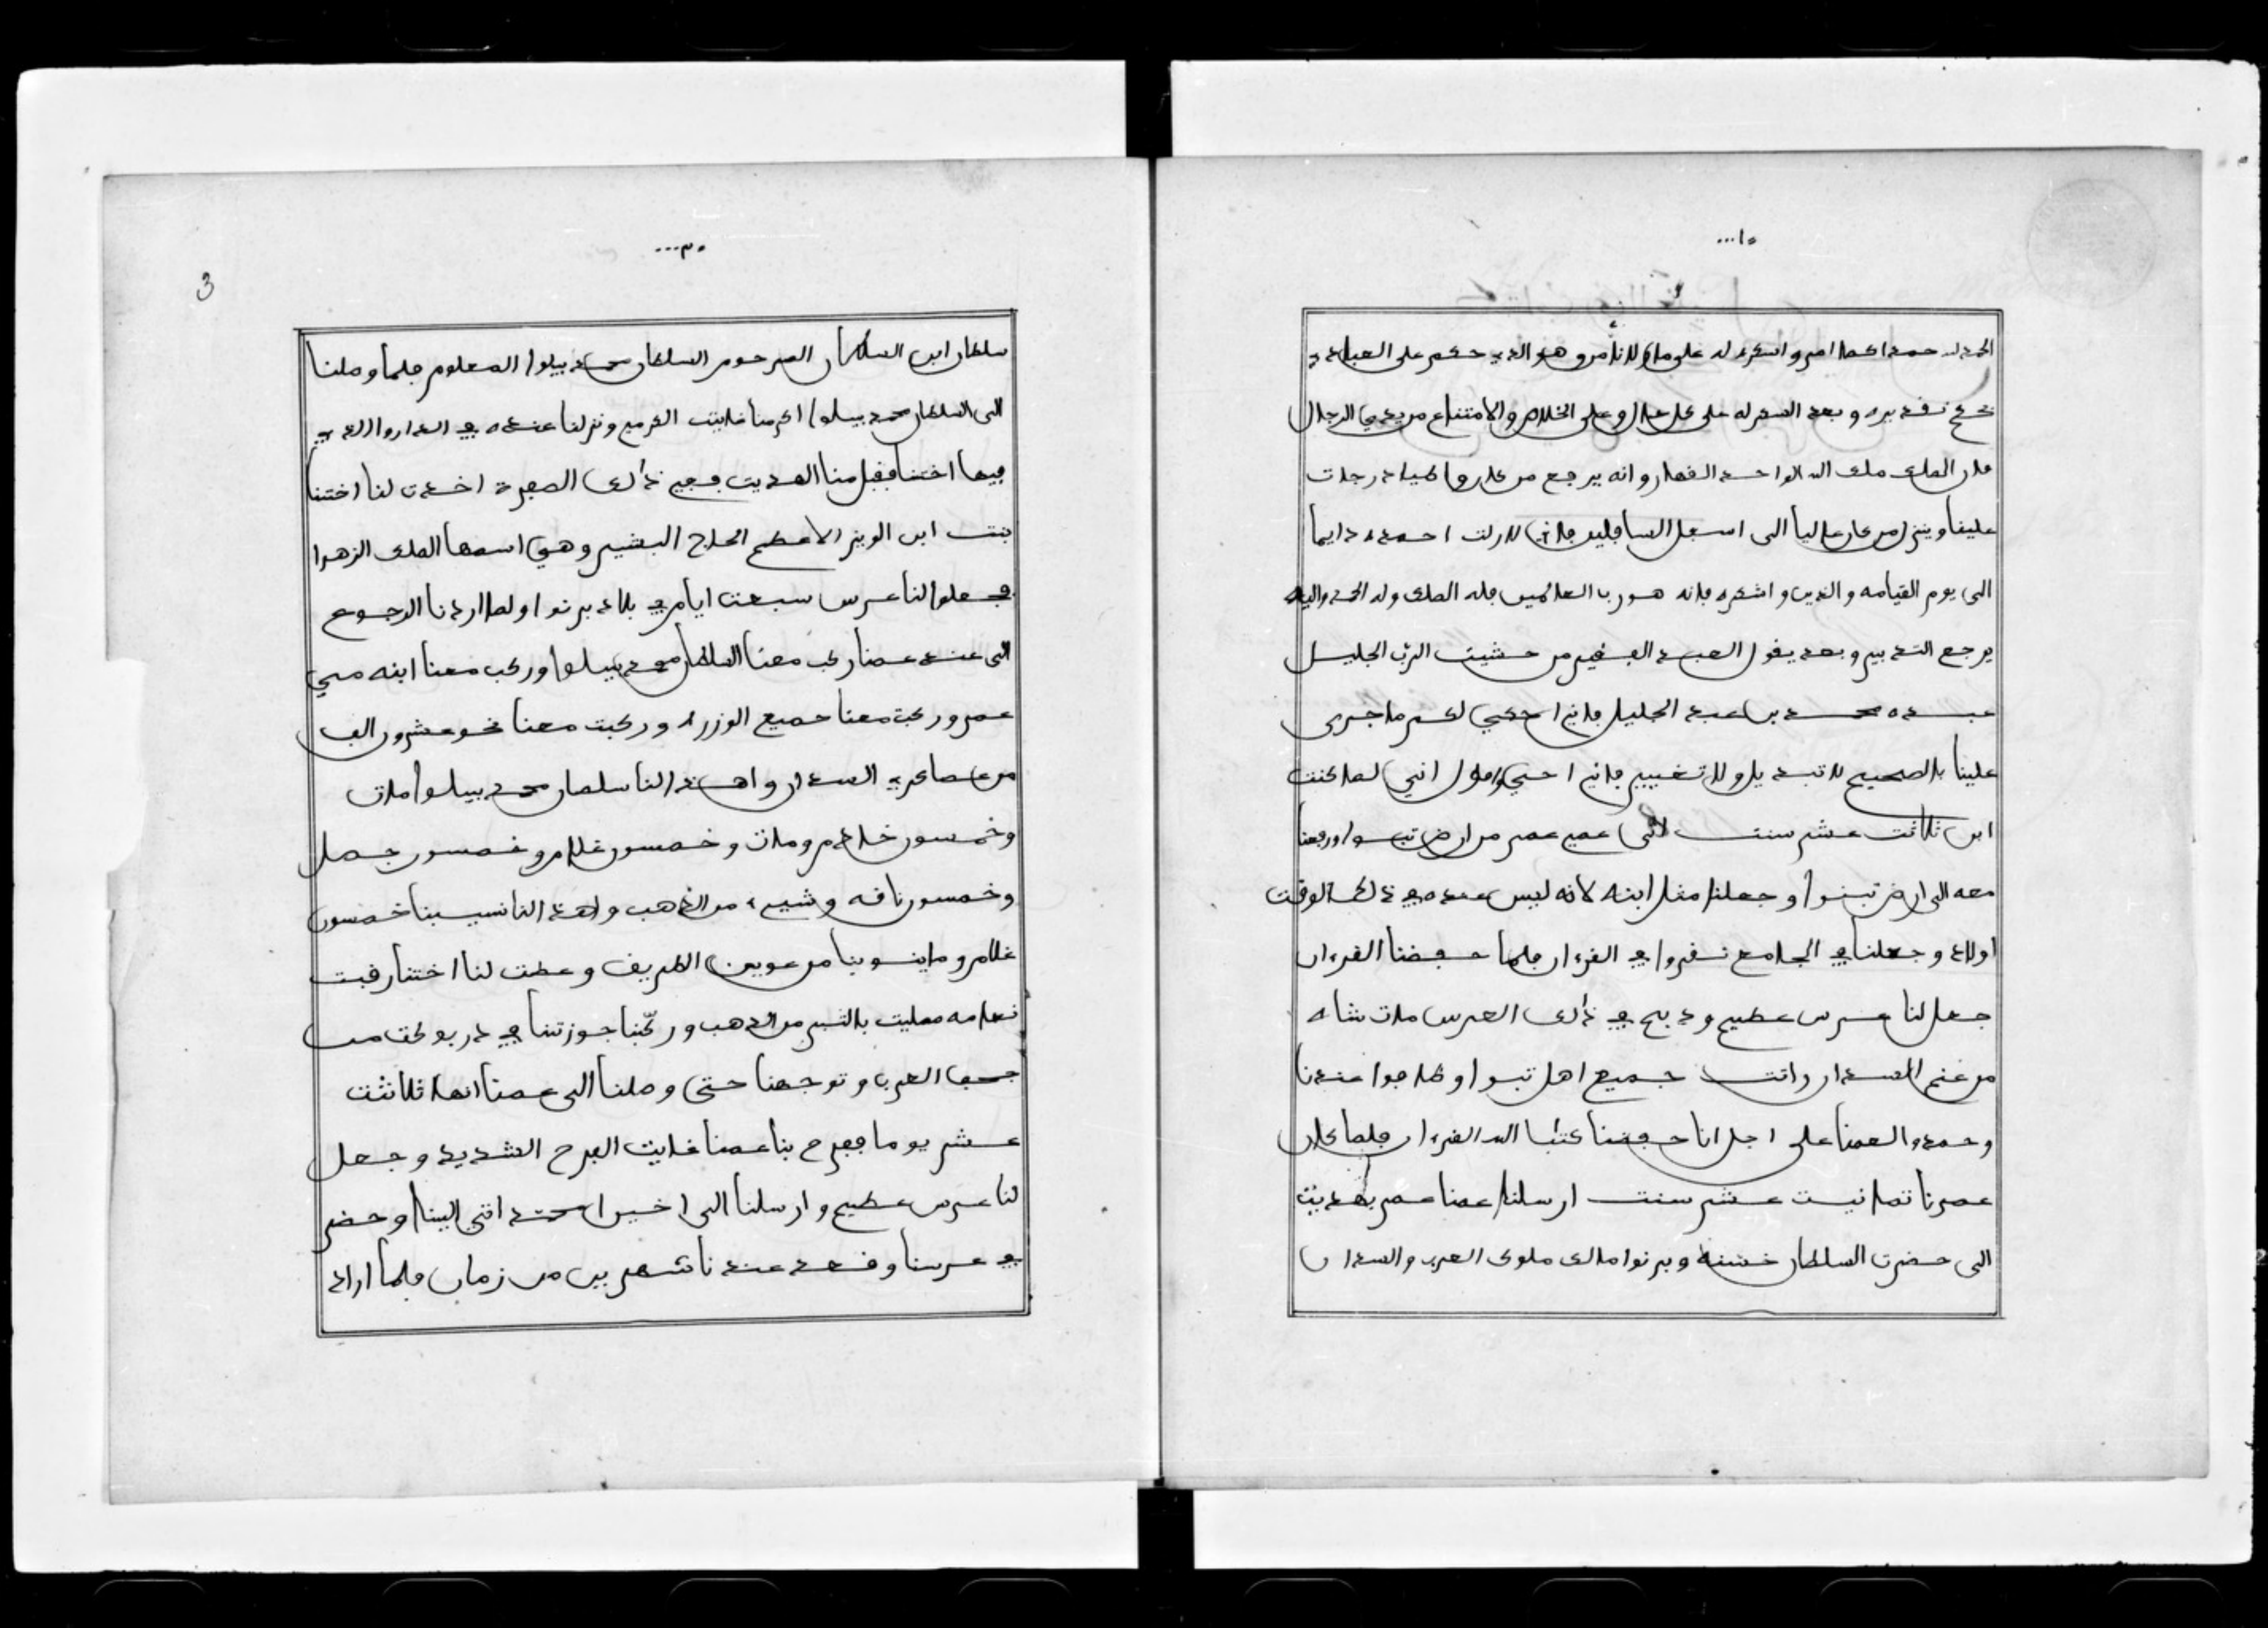 ٠١...
الحمد لله حمدا كما امر واشكره له على ما لنا أمر وهو الذي حكم على العباد
تحت قدبيره وبعد الشكر له على كل حال وعلى الخلاص والامتناع من يدي الرجال
فان الملك ملك الله الواحد القهار وانه يرجع من كان واطيا درجات
عليفا وينزل من كان عاليا الى اسفل السافلين فاني لازلت احمده دايما
الى يوم القيامه والدين واشكره فانه هو رب العالمين فله الملك وله الحمد واليه
يرجع التدبير وبعد يقول العبد الفقير من خشيت الرب الجليل
عبده محمد بن عبد الجليل فاني احكي لكم ما جرى
علينا بالصحيح لا تبديل ولا تغيير فاني احكي واقول انني لما كنت
ابن ثلاثت عشر سنت اتى عمي عمر من ارض تبسوا ورفعنا
معه الى ارض تبسوا وجعلنا مثل ابنه لانه ليس عنده في ذلك الوقت
اولاد وجعلنا في الجامع نقروا في القرءان فلما حفضنا القرءان
جعل لنا عرس عظيم وذبح في ذالك العرس مات شاه
من غنم السدان واتت جميع اهل تبسوا وطافوا عندنا
وحمدوا لعمنا على اجل انا حفضنا كتاب الله القرءان فلما كان
عمرنا تمانيت عشر سنت ارسلنا عمنا عمر بهديت
الى حضرت السلطان خشنه وبرنوا مالك ملوك العرب والسدان
٠٣...
3
سلطان ابن السلطان المرحوم السلطان محمد بيلوا المعلوم فلما وصلنا
الى السلطان محمد بيلوا اكرمنا غايت الكرم ونزلنا عنده في الدار والذي
فيها اختنا فقبل منا الهديت ففي ذالك السفرة اخدت لنا اختنا
بنت ابن الوزير الاعظم الحاج البشير وهي اسمها الملك الزهرا
فجعلوا لنا عرس سبعت ايام في بلاد برنوا ولما اردنا الرجوع
الى عند عمنا ركب معنا السلطان محمد بيلوا وركب معنا ابنه سي
عمر وركبت معنا جميع الوزراء وركبت معنا نحو عشرون الف
من عساكر السدان واهدا لنا سلطان محمد بيلوا مات
وخمسون خادم ومات وخمسون غلام وخمسون جمل
وخمسون ناقه وشيء من الذهب واهدا لنا نسيبنا خمسون
غلام وماينوبنا من عوين الطريف وعطت لنا اختنا رقبت
نعامه معليت بالتبر من الذهب وركبنا جوزتنا في دربوكت من
جحفا العرب وتوجهنا حتى وصلنا الى عمنا انها ثلاثت
عشر يوما ففرح بنا عمنا غايت الفرح الشديد وجعل
لنا عرس عظيم وارسلنا الى اخير محمد اتى الينا وحضر
في عرسنا وقعد عندنا شهرين من زمان فلما اراد